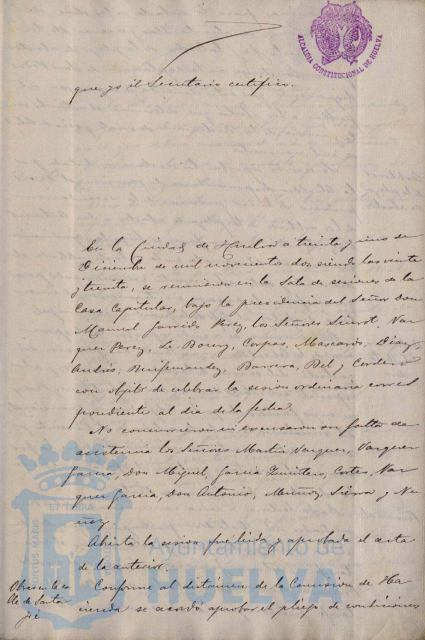 ALCALDIA CONSTITUCIONAL DE HUELVA
que yo el Secretario certifico.
En la Ciudad de Huelva a treinta y uno de
Diciembre de mil novecientos dos siendo las veinte
y treinta, se reunieron en la Sala de sesiones de la
Casa Capitular, bajo la presidencia del Señor Don
Manuel Garrido Perez, los Señores Siurot, Vaz
quez Perez, Le Bourg, Corpas, Mascaros, Diaz,
Andrés, Hernandez, Barrera, Bel y Cordero
con objeto de celebrar la sesion ordinaria corres
pondiente al dia de la fecha.
No concurrieron ni excusaron su falta de
asistencia los Señores Martin Vazquez, Vazquez
Garcia, Don Miguel, Garcia Cortes, Vaz
quez Garcia, Don Antonio, Muñoz, Sierra y Nu
ñez.
Abierta la sesion fué leida y aprobada el acta
de la anterior.
Obras en la ca
lle de Santa
Fé
Conforme al dictámen de la Comision de Ha
cienda se acordó aprobar el pliego de condiciones
Ayuntamiento de
HUELVA